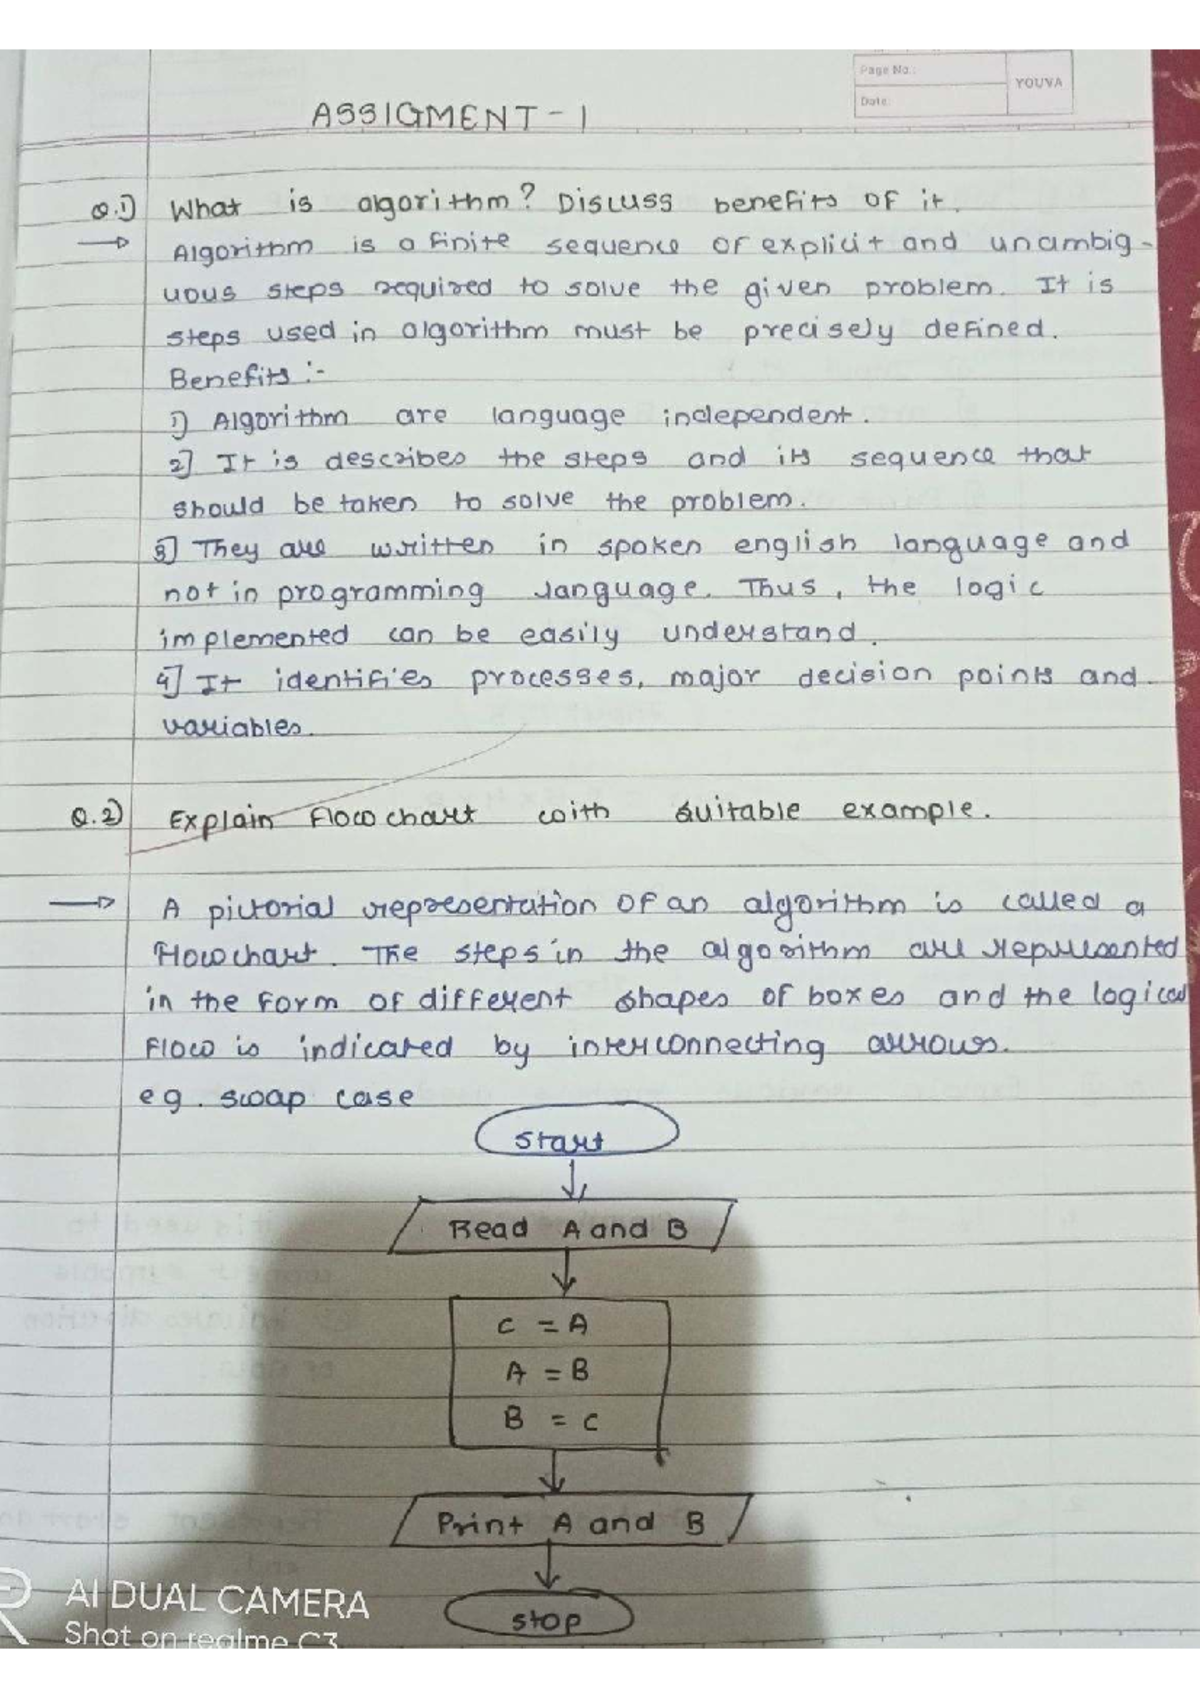 Page No.:
YOUVA
Date:
ASSIGMENT - 1
Q.1) What is algorithm? Discuss benefits of it.
→ Algorithm is a finite sequence of explicit and unambig-
uous steps required to solve the given problem. It is
steps used in algorithm must be precisely defined.
Benefits :-
1) Algorithm are language independent.
2] It is describes the steps and its sequence that
should be taken to solve the problem.
3] They are written in spoken english language and
not in programming language. Thus, the logic
implemented can be easily understand.
4] It identifies processes, major decision points and
variables.
Q.2) Explain flowchart with suitable example.
→ A pictorial representation of an algorithm is called a
flowchart. The steps in the algorithm are represented
in the form of different shapes of boxes and the logical
flow is indicated by interconnecting arrows.
eg. swap case
start
Read A and B
C = A
A = B
B = C
Print A and B
stop
AI DUAL CAMERA
Shot on realme C3